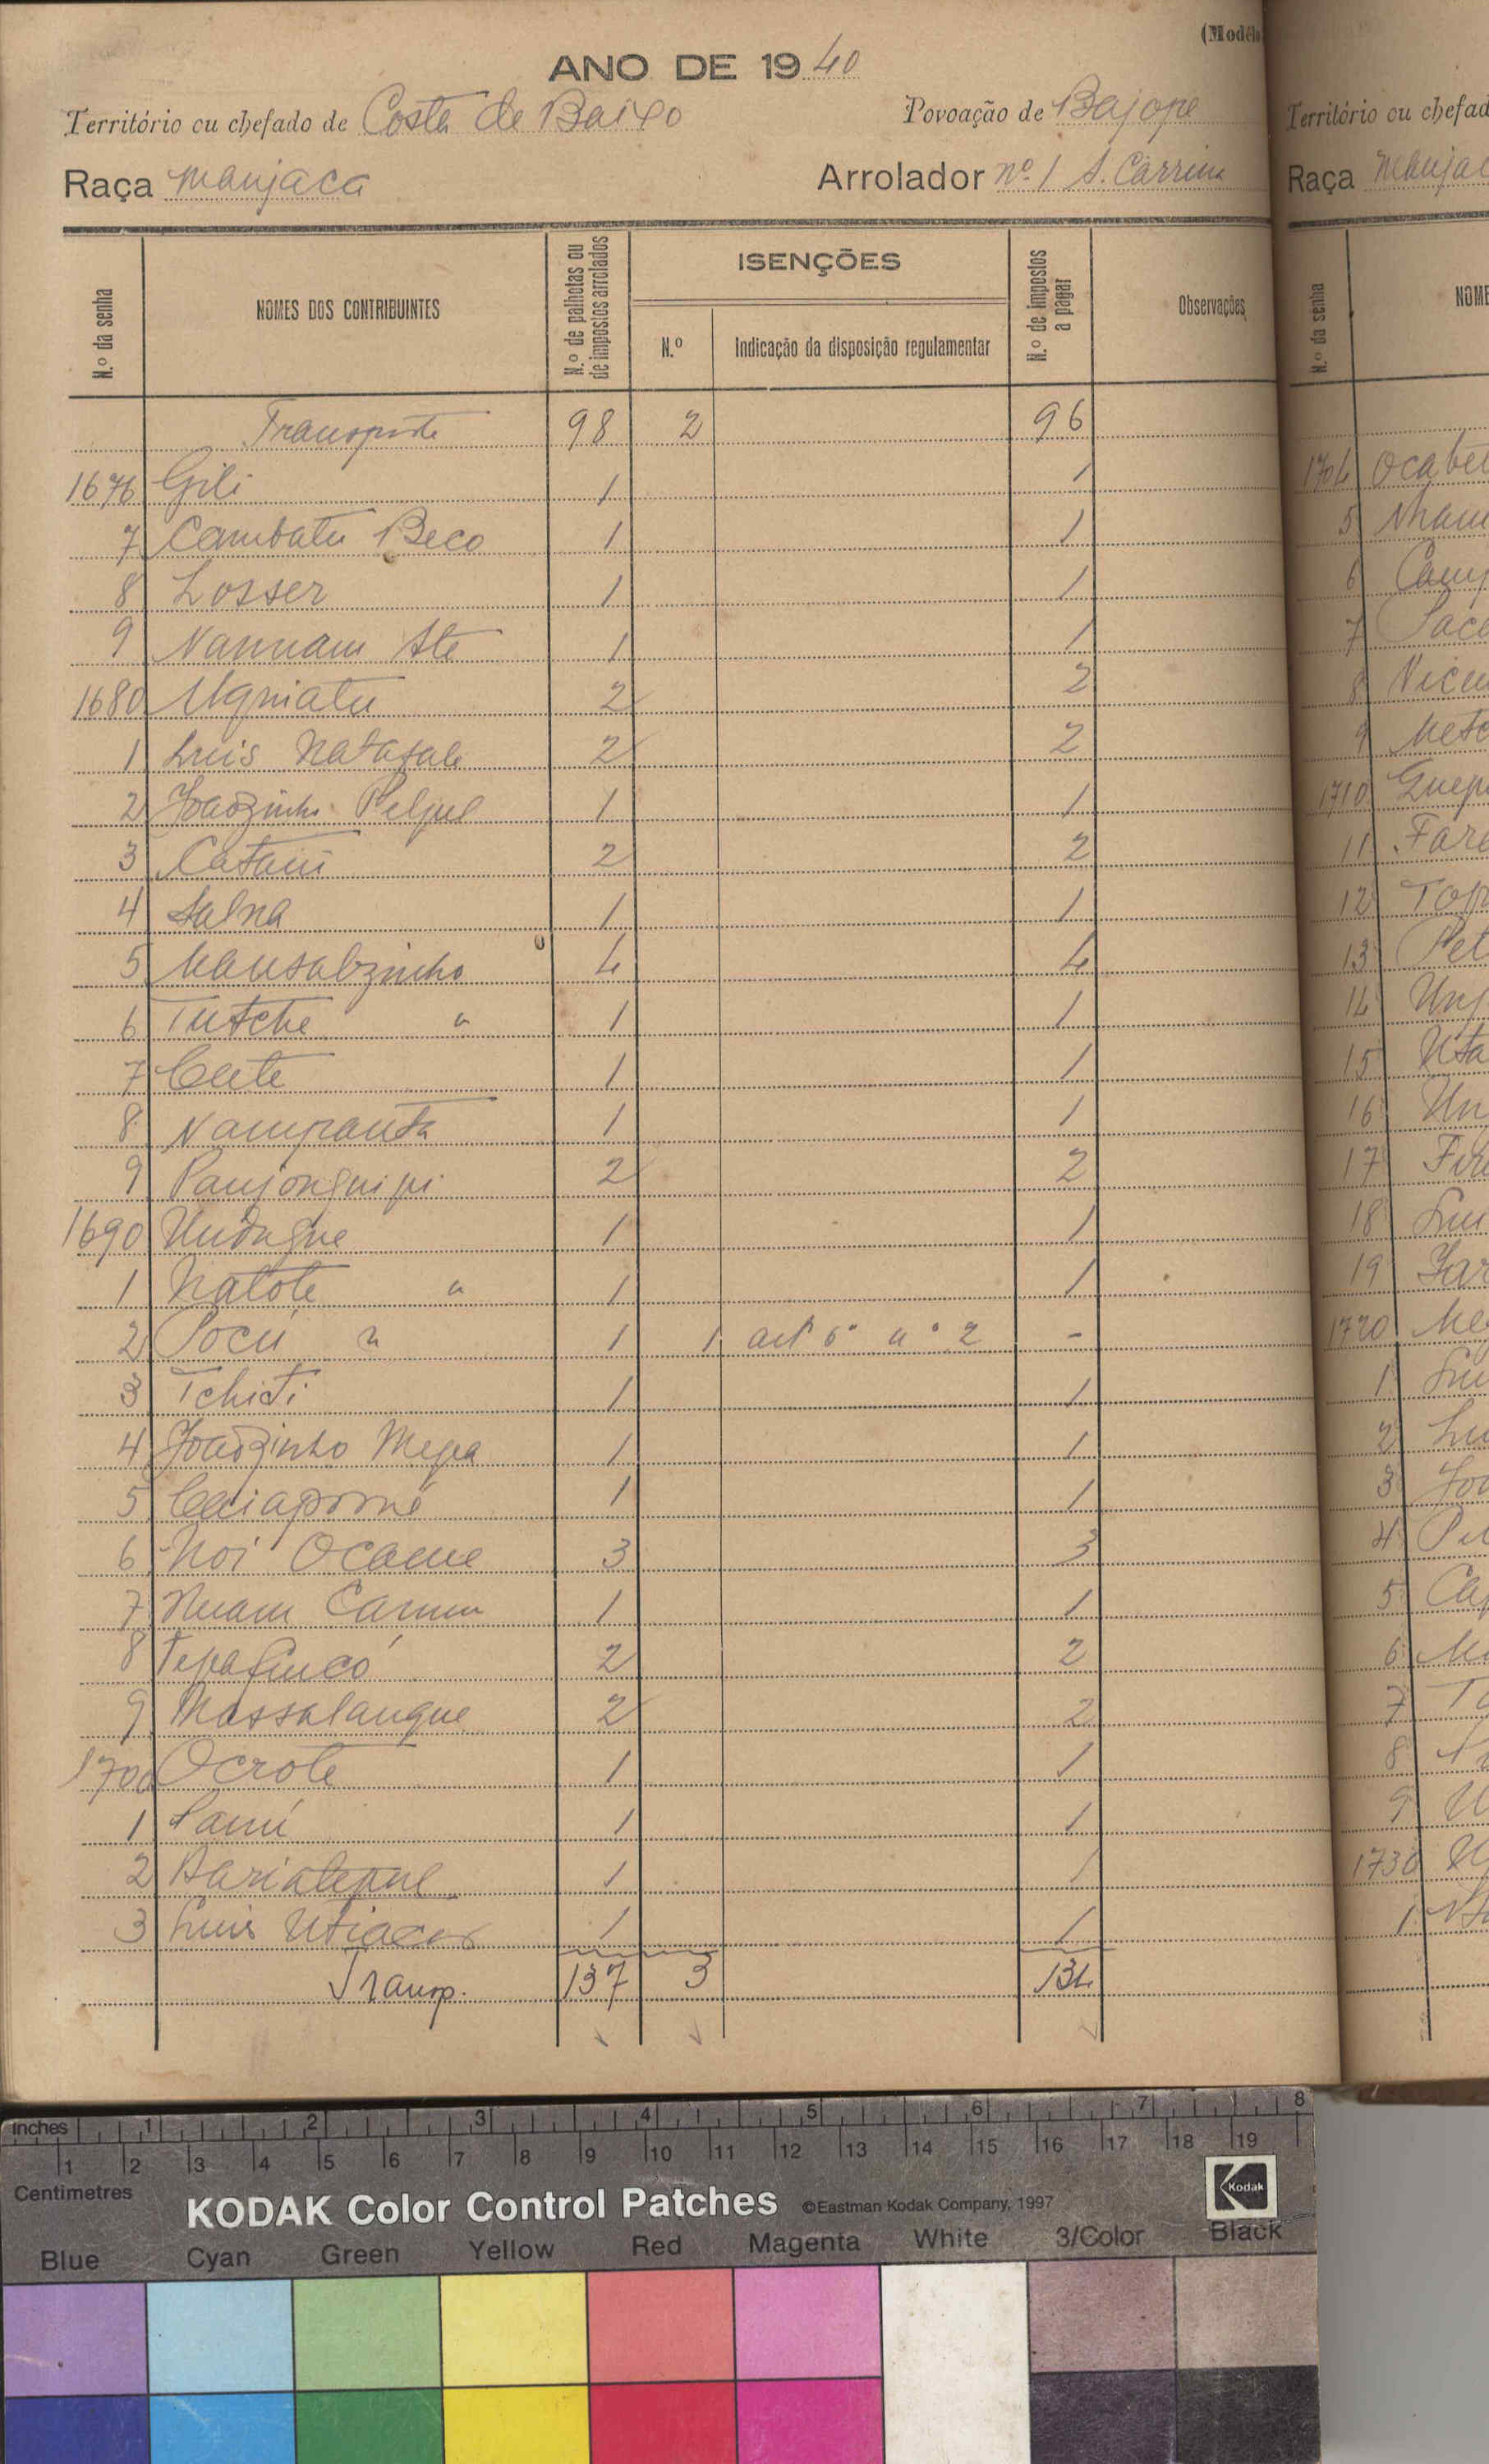 (Modêlo
ANO DE 1940
Território ou chefado de Costa de Baixo Povoação de Bajope
Raça manjaca Arrolador nº 1 S. Carrim
N.º da senha NOMES DOS CONTRIBUINTES N.º de palhotas ou de impostos arrolados ISENÇÕES N.º Indicação da disposição regulamentar N.º de impostos a pagar Observações
Transporte 98 2 96
1676 Gili 1 1
7 Cambatu Beco 1 1
8 Losser 1 1
9 Nannam Ate 1 1
1680 Ugniatu 2 2
1 Luis Natafale 2 2
2 Joaozinho Peljul 1 1
3 Catam 2 2
4 Salna 1 1
5 Mansalzinho 4 4
6 Tutche " 1 1
7 Cute 1 1
8 Nampanta 1 1
9 Panjonguipi 2 2
1690 Undugue 1 1
1 Natote " 1 1
2 Pocu " 1 1 artº 6º nº 2 -
3 Tchiti 1 1
4 Joaozinho Mepa 1 1
5 Caiapomé 1 1
6 Noi Ocame 3 3
7 Nuam 1 1
8 2 2
9 Massalanque 2 2
1700 Ocrote 1 1
1 Samú 1 1
2 Bariatepul 1 1
3 Luis 1 1
Transp. 137 3 134
Território ou chefad
Raça Manjac
N.º da senha NOME
1704 Ocabe
5 Nham
6 Camp
7
8
9
1710
11 Fare
12
13 Pet
14
15 Uta
16 Un
17
18
19
1720
1
2
3
4
5
6
7
8
9
1730
1
inches 1 2 3 4 5 6 7 8
1 2 3 4 5 6 7 8 9 10 11 12 13 14 15 16 17 18 19
Centimetres
KODAK Color Control Patches ©Eastman Kodak Company, 1997 Kodak
Blue Cyan Green Yellow Red Magenta White 3/Color Black